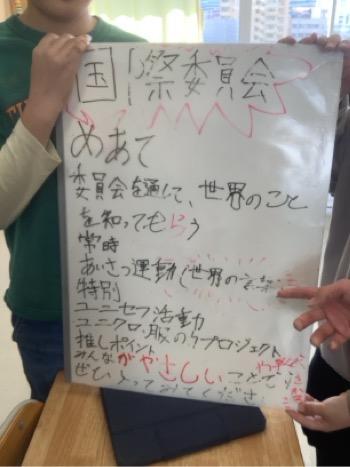 国際委員会
めあて
委員会を通して、世界のこと
を知ってもらう
常時
あいさつ運動(世界の言葉
特別
ユニセフ活動
ユニクロ:服のカプロジェクト
推しポイント
みんながやさしい
ぜひ入ってみてください